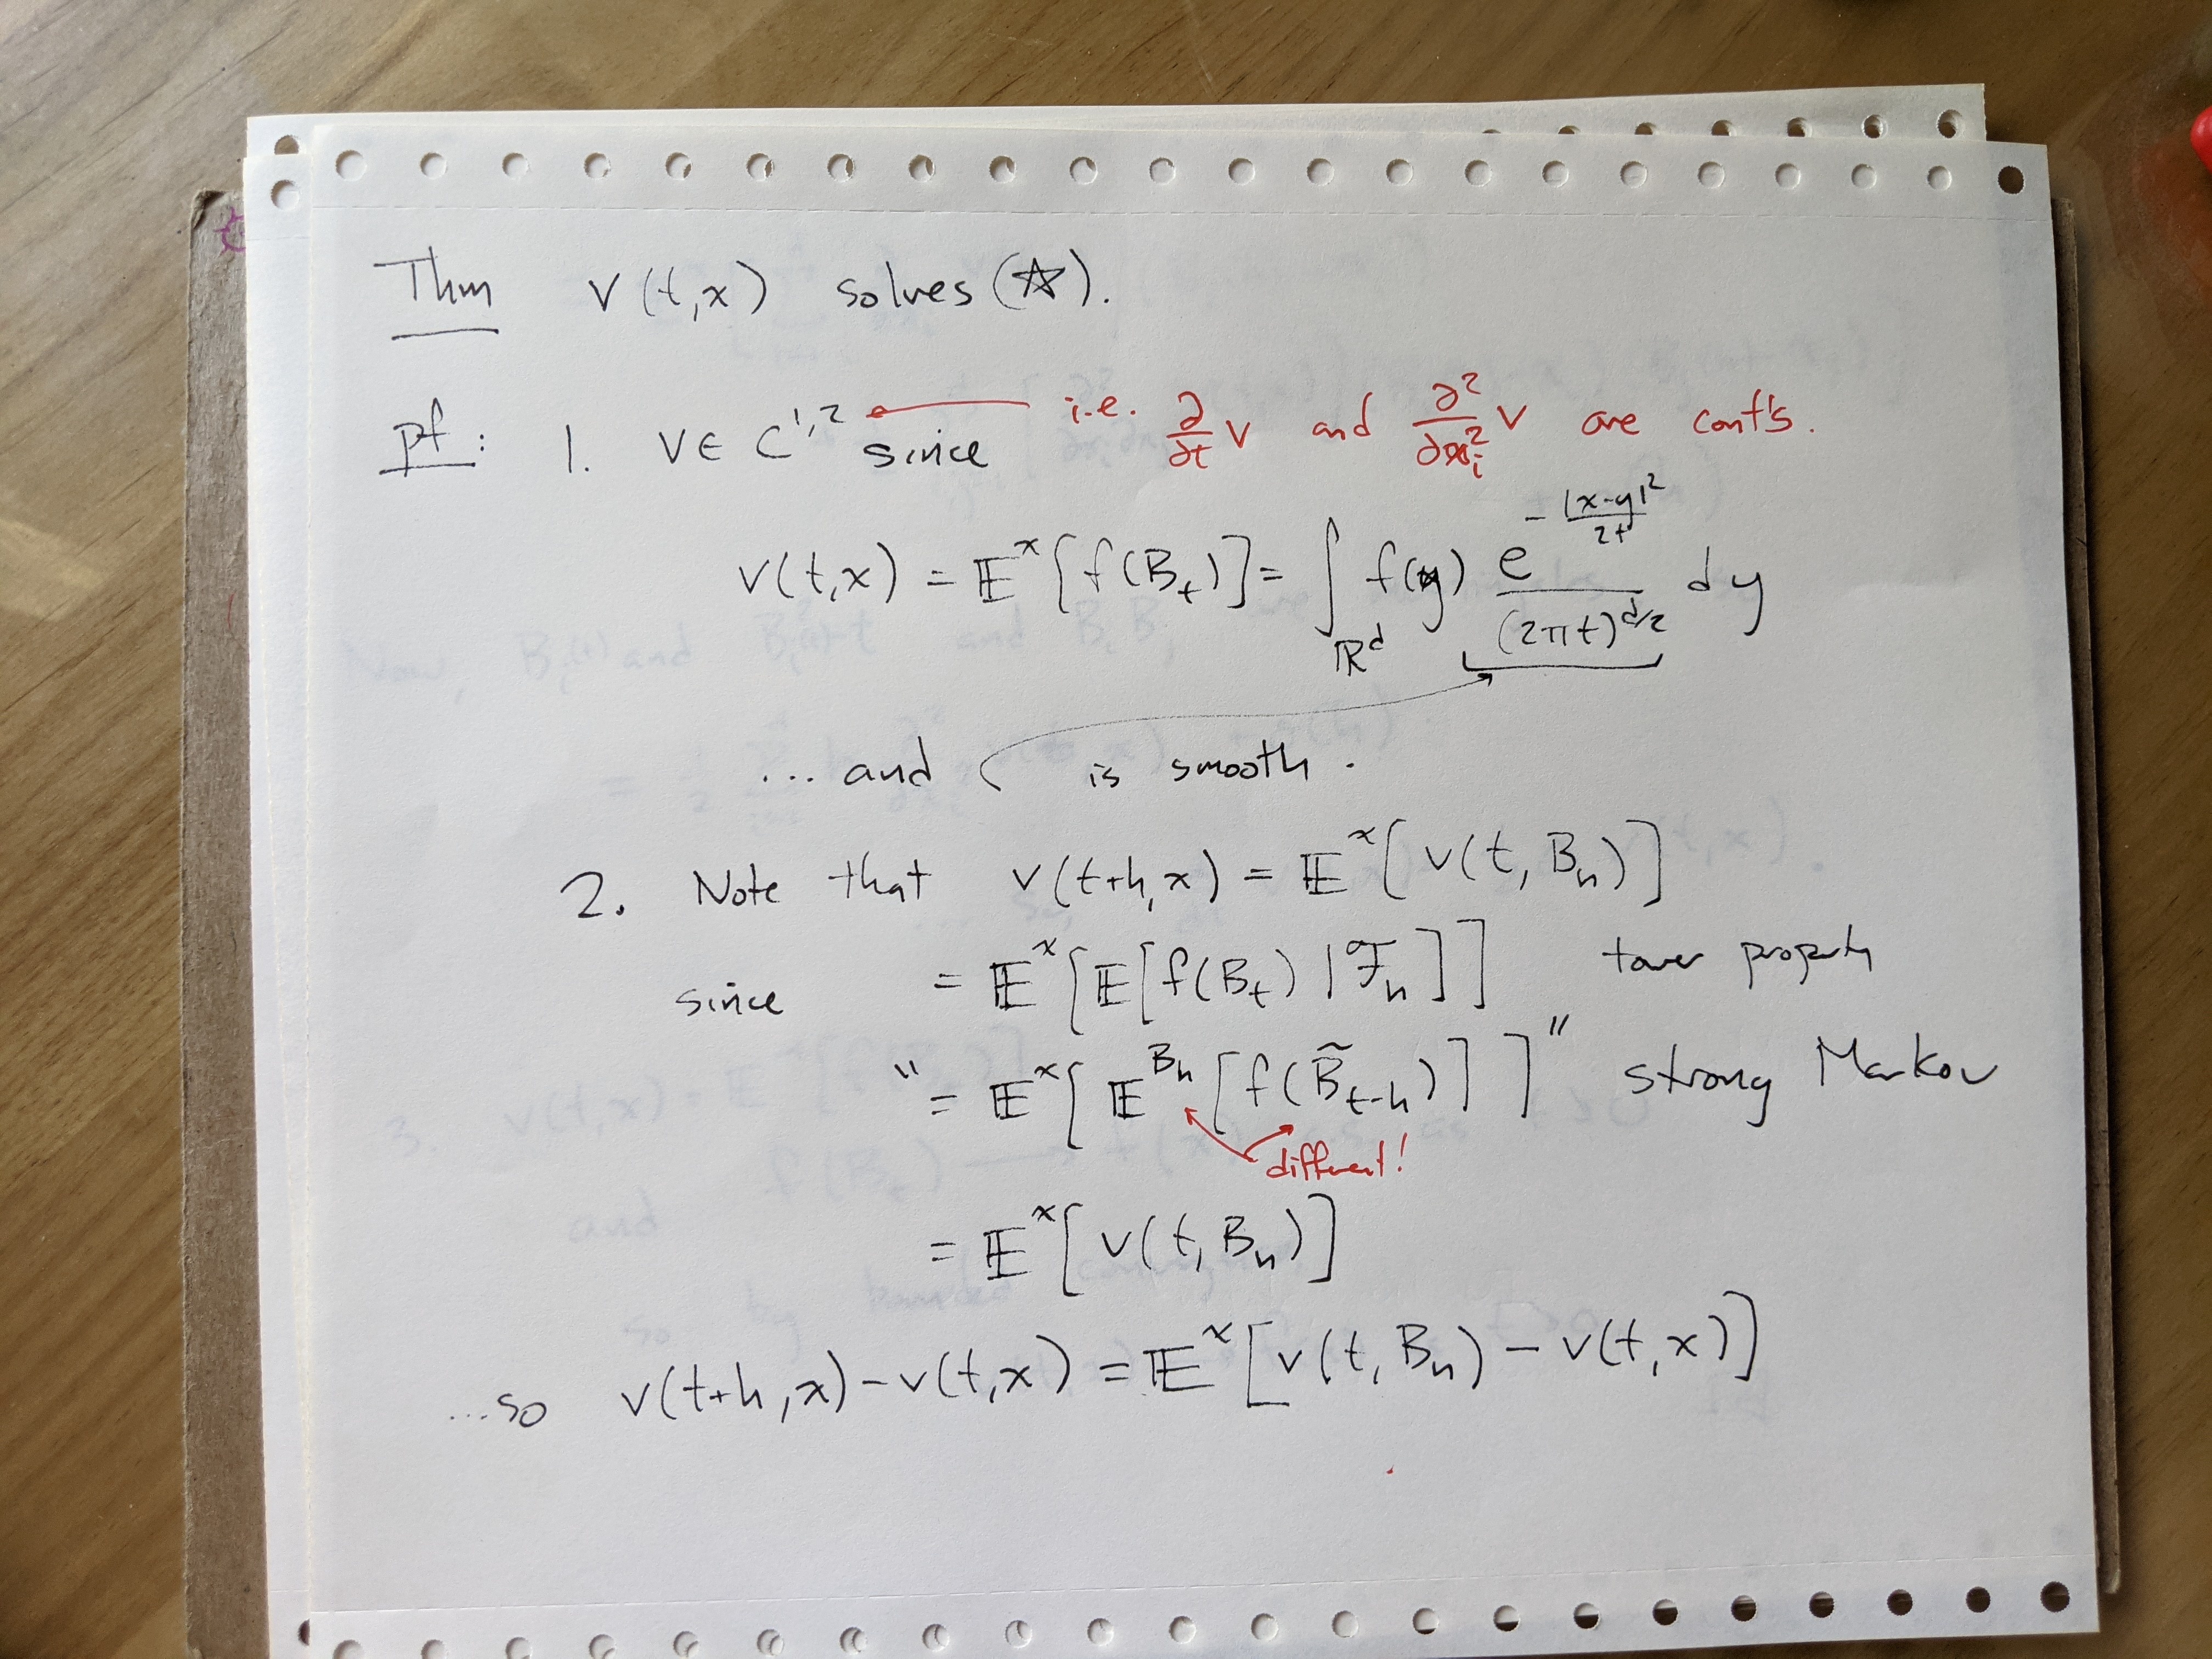 Thm v(t,x) solves (☆).
pf: 1. v ∈ C^{1,2} since i.e. ∂/∂t v and ∂²/∂x_i² v are cont's.
v(t,x) = 𝔼^x[f(B_t)] = ∫_{ℝ^d} f(y) e^{-|x-y|²/2t} / (2πt)^{d/2} dy
... and is smooth.
2. Note that v(t+h,x) = 𝔼^x[v(t,B_h)]
since = 𝔼^x[𝔼[f(B_t) | ℱ_h]] tower property
" = 𝔼^x[𝔼^{B_h}[f(B̃_{t-h})]]" strong Markov
different!
= 𝔼^x[v(t,B_h)]
...so v(t+h,x) - v(t,x) = 𝔼^x[v(t,B_h) - v(t,x)]